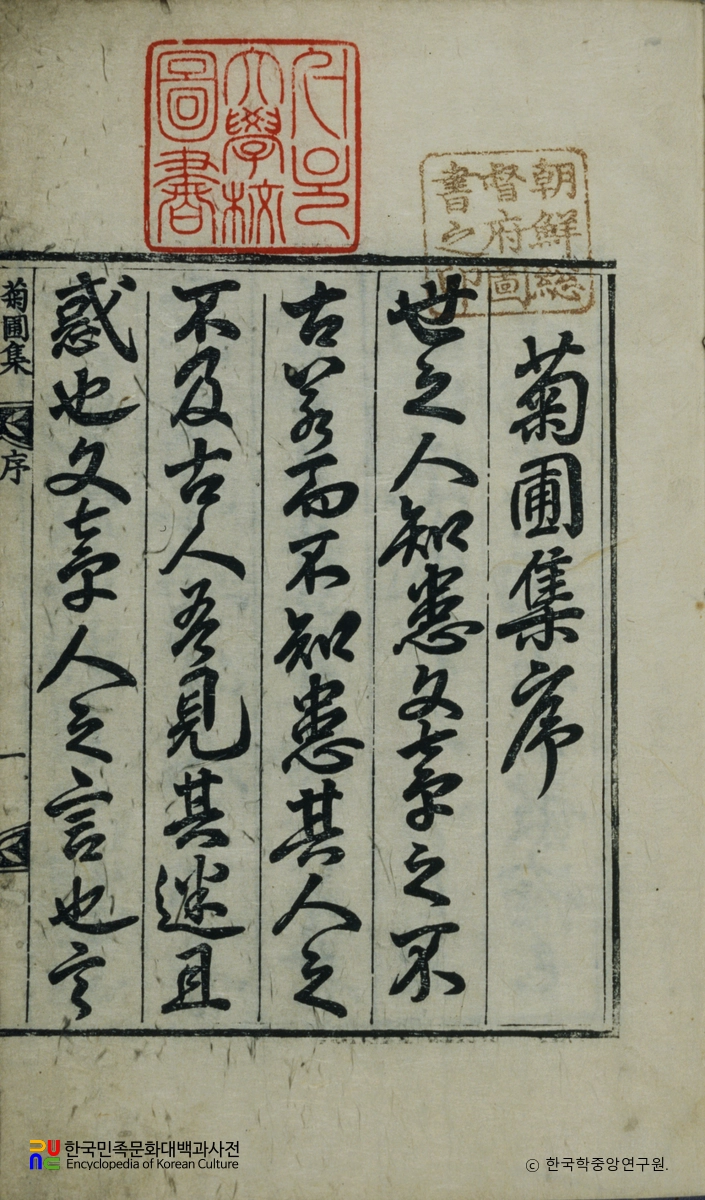 서울
大學校
圖書
朝鮮總
督府圖
書之印
菊圃集序
世之人知患文章之不
古若而不知患其人之
不及古人吾見其迷且
惑也文章人之言也言
菊圃集
序
一
한국민족문화대백과사전
Encyclopedia of Korean Culture
© 한국학중앙연구원.